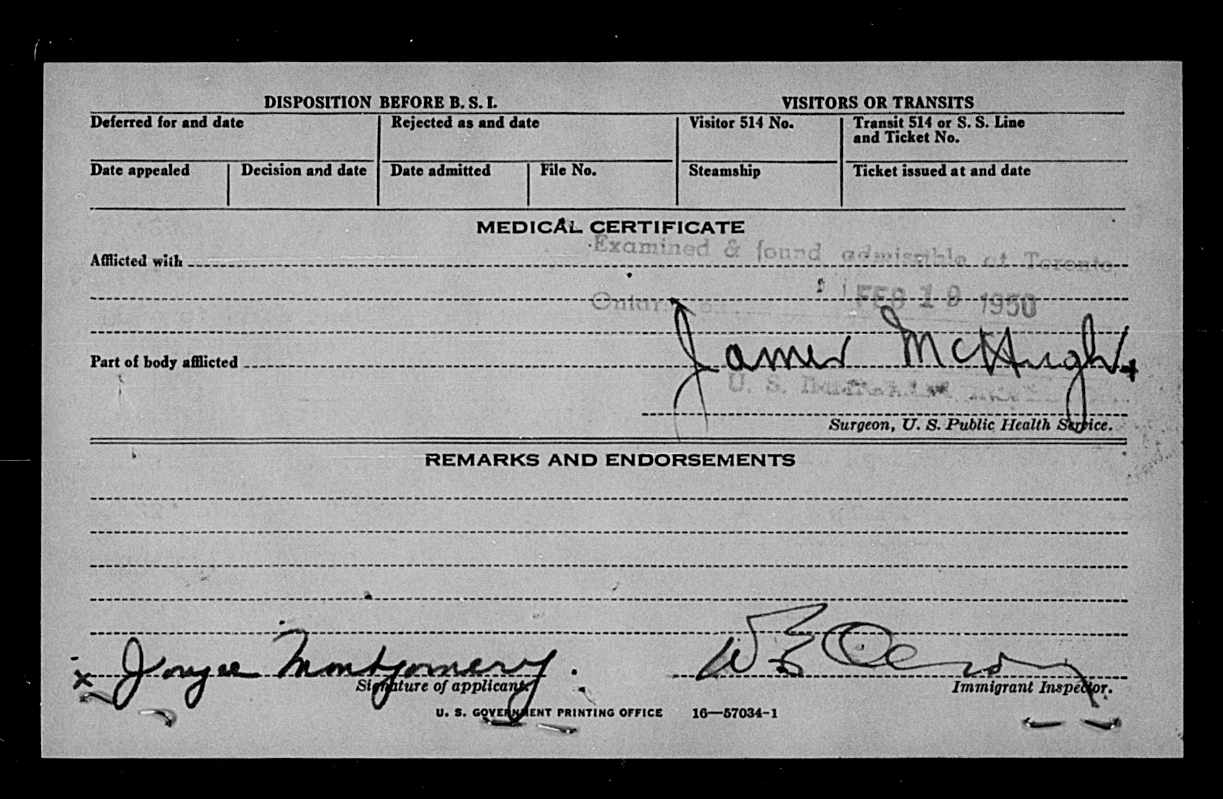 DISPOSITION BEFORE B. S. I. VISITORS OR TRANSITS
Deferred for and date Rejected as and date Visitor 514 No. Transit 514 or S. S. Line
and Ticket No.
Date appealed Decision and date Date admitted File No. Steamship Ticket issued at and date
MEDICAL CERTIFICATE
Examined & found admissible at Toronto,
Afflicted with
FEB 19 1950
James McHugh
Part of body afflicted
U. S.
Surgeon, U. S. Public Health Service.
REMARKS AND ENDORSEMENTS
x Joyce Montgomery.
Signature of applicant. Immigrant Inspector.
U. S. GOVERNMENT PRINTING OFFICE 16—57034-1